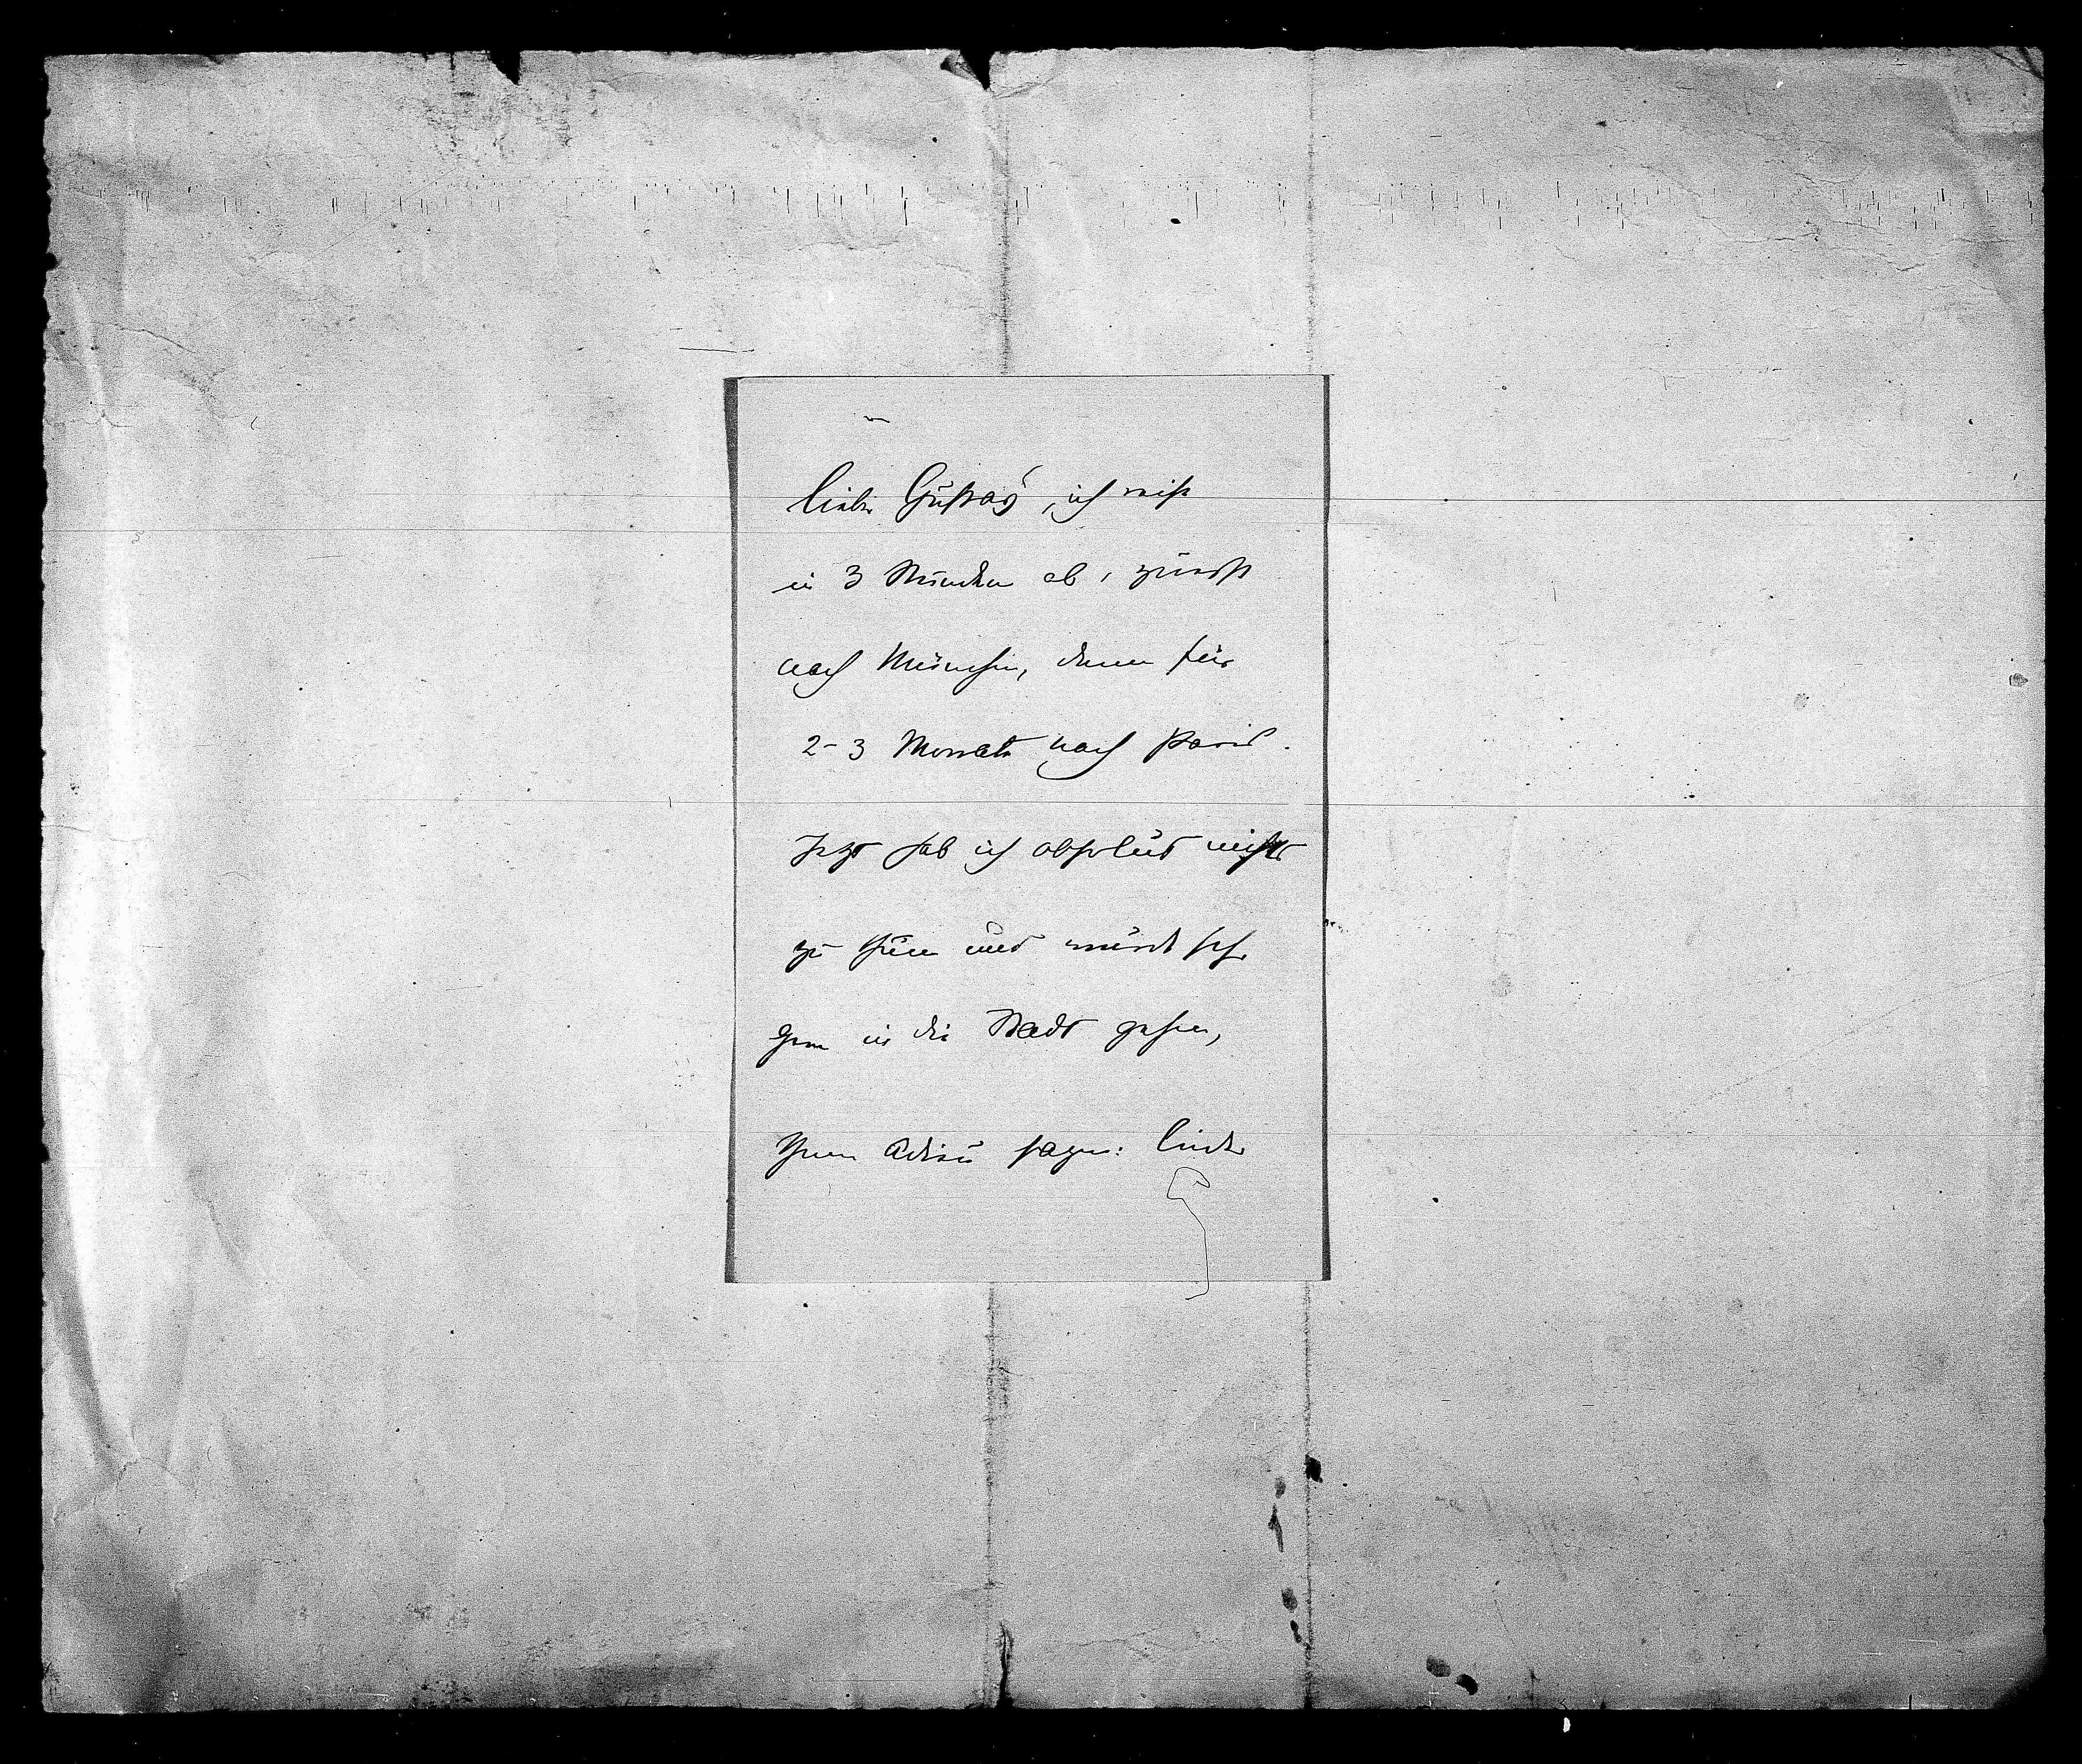 Lieber Gustav, ich reise
in 3 Stunden ab, zuerst
nach München, dann für
2-3 Monate nach Paris.
Jetzt hab ich absolut nichts
zu thun und würde sehr
gern in die Stadt gehen,
Ihnen Adieu sagen: leider